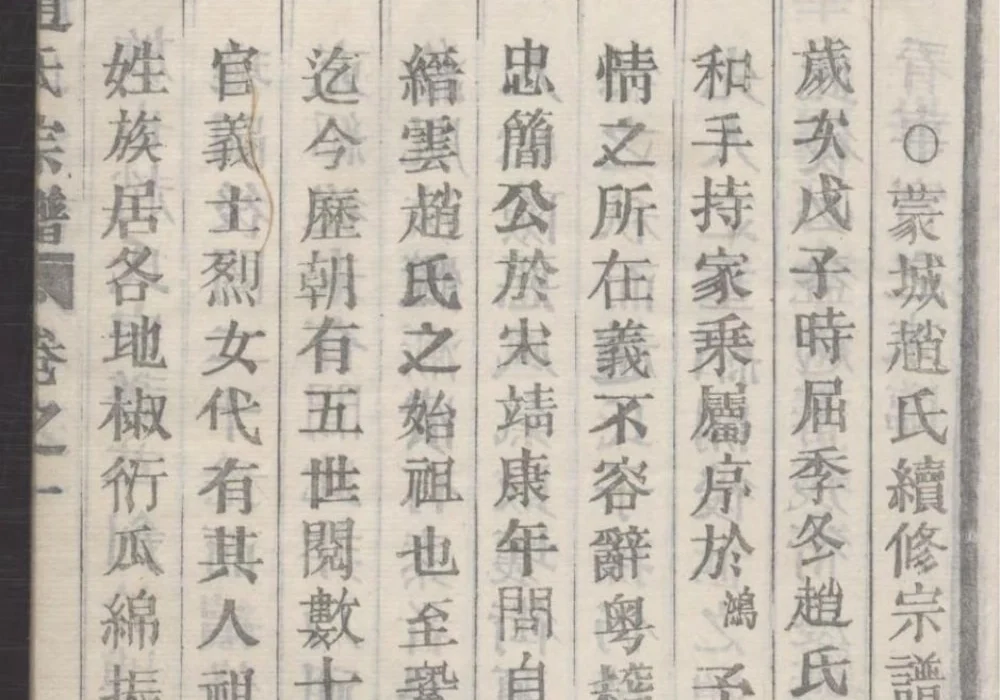 ○蒙城趙氏續修宗譜
歲次戊子時屆季冬趙氏
和手持家乗屬序於鴻予
情之所在義不容辭粤
忠簡公於宋靖康年間自
縉雲趙氏之始祖也至
迄今歷朝有五世閱數十
官義士烈女代有其人祖
姓族居各地椒衍瓜綿振
趙氏宗譜 卷之一